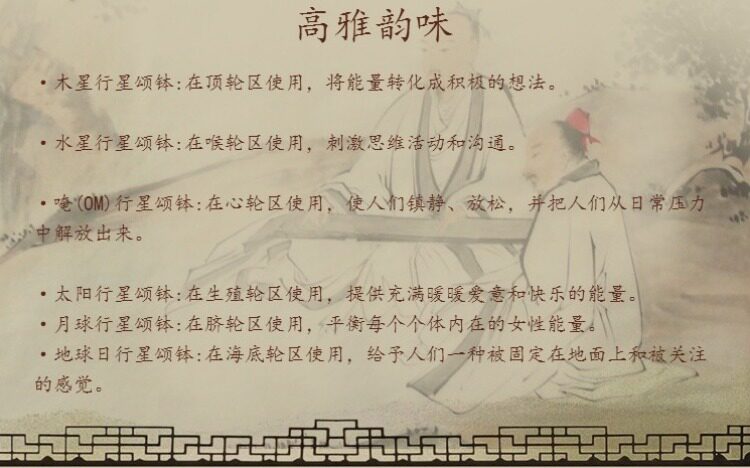 高雅韵味
·木星行星颂钵:在顶轮区使用，将能量转化成积极的想法。
·水星行星颂钵:在喉轮区使用，刺激思维活动和沟通。
·唵(OM)行星颂钵:在心轮区使用，使人们镇静、放松，并把人们从日常压力
中解放出来。
·太阳行星颂钵:在生殖轮区使用，提供充满暖暖爱意和快乐的能量。
·月球行星颂钵:在脐轮区使用，平衡每个个体内在的女性能量。
·地球日行星颂钵:在海底轮区使用，给予人们一种被固定在地面上和被关注
的感觉。